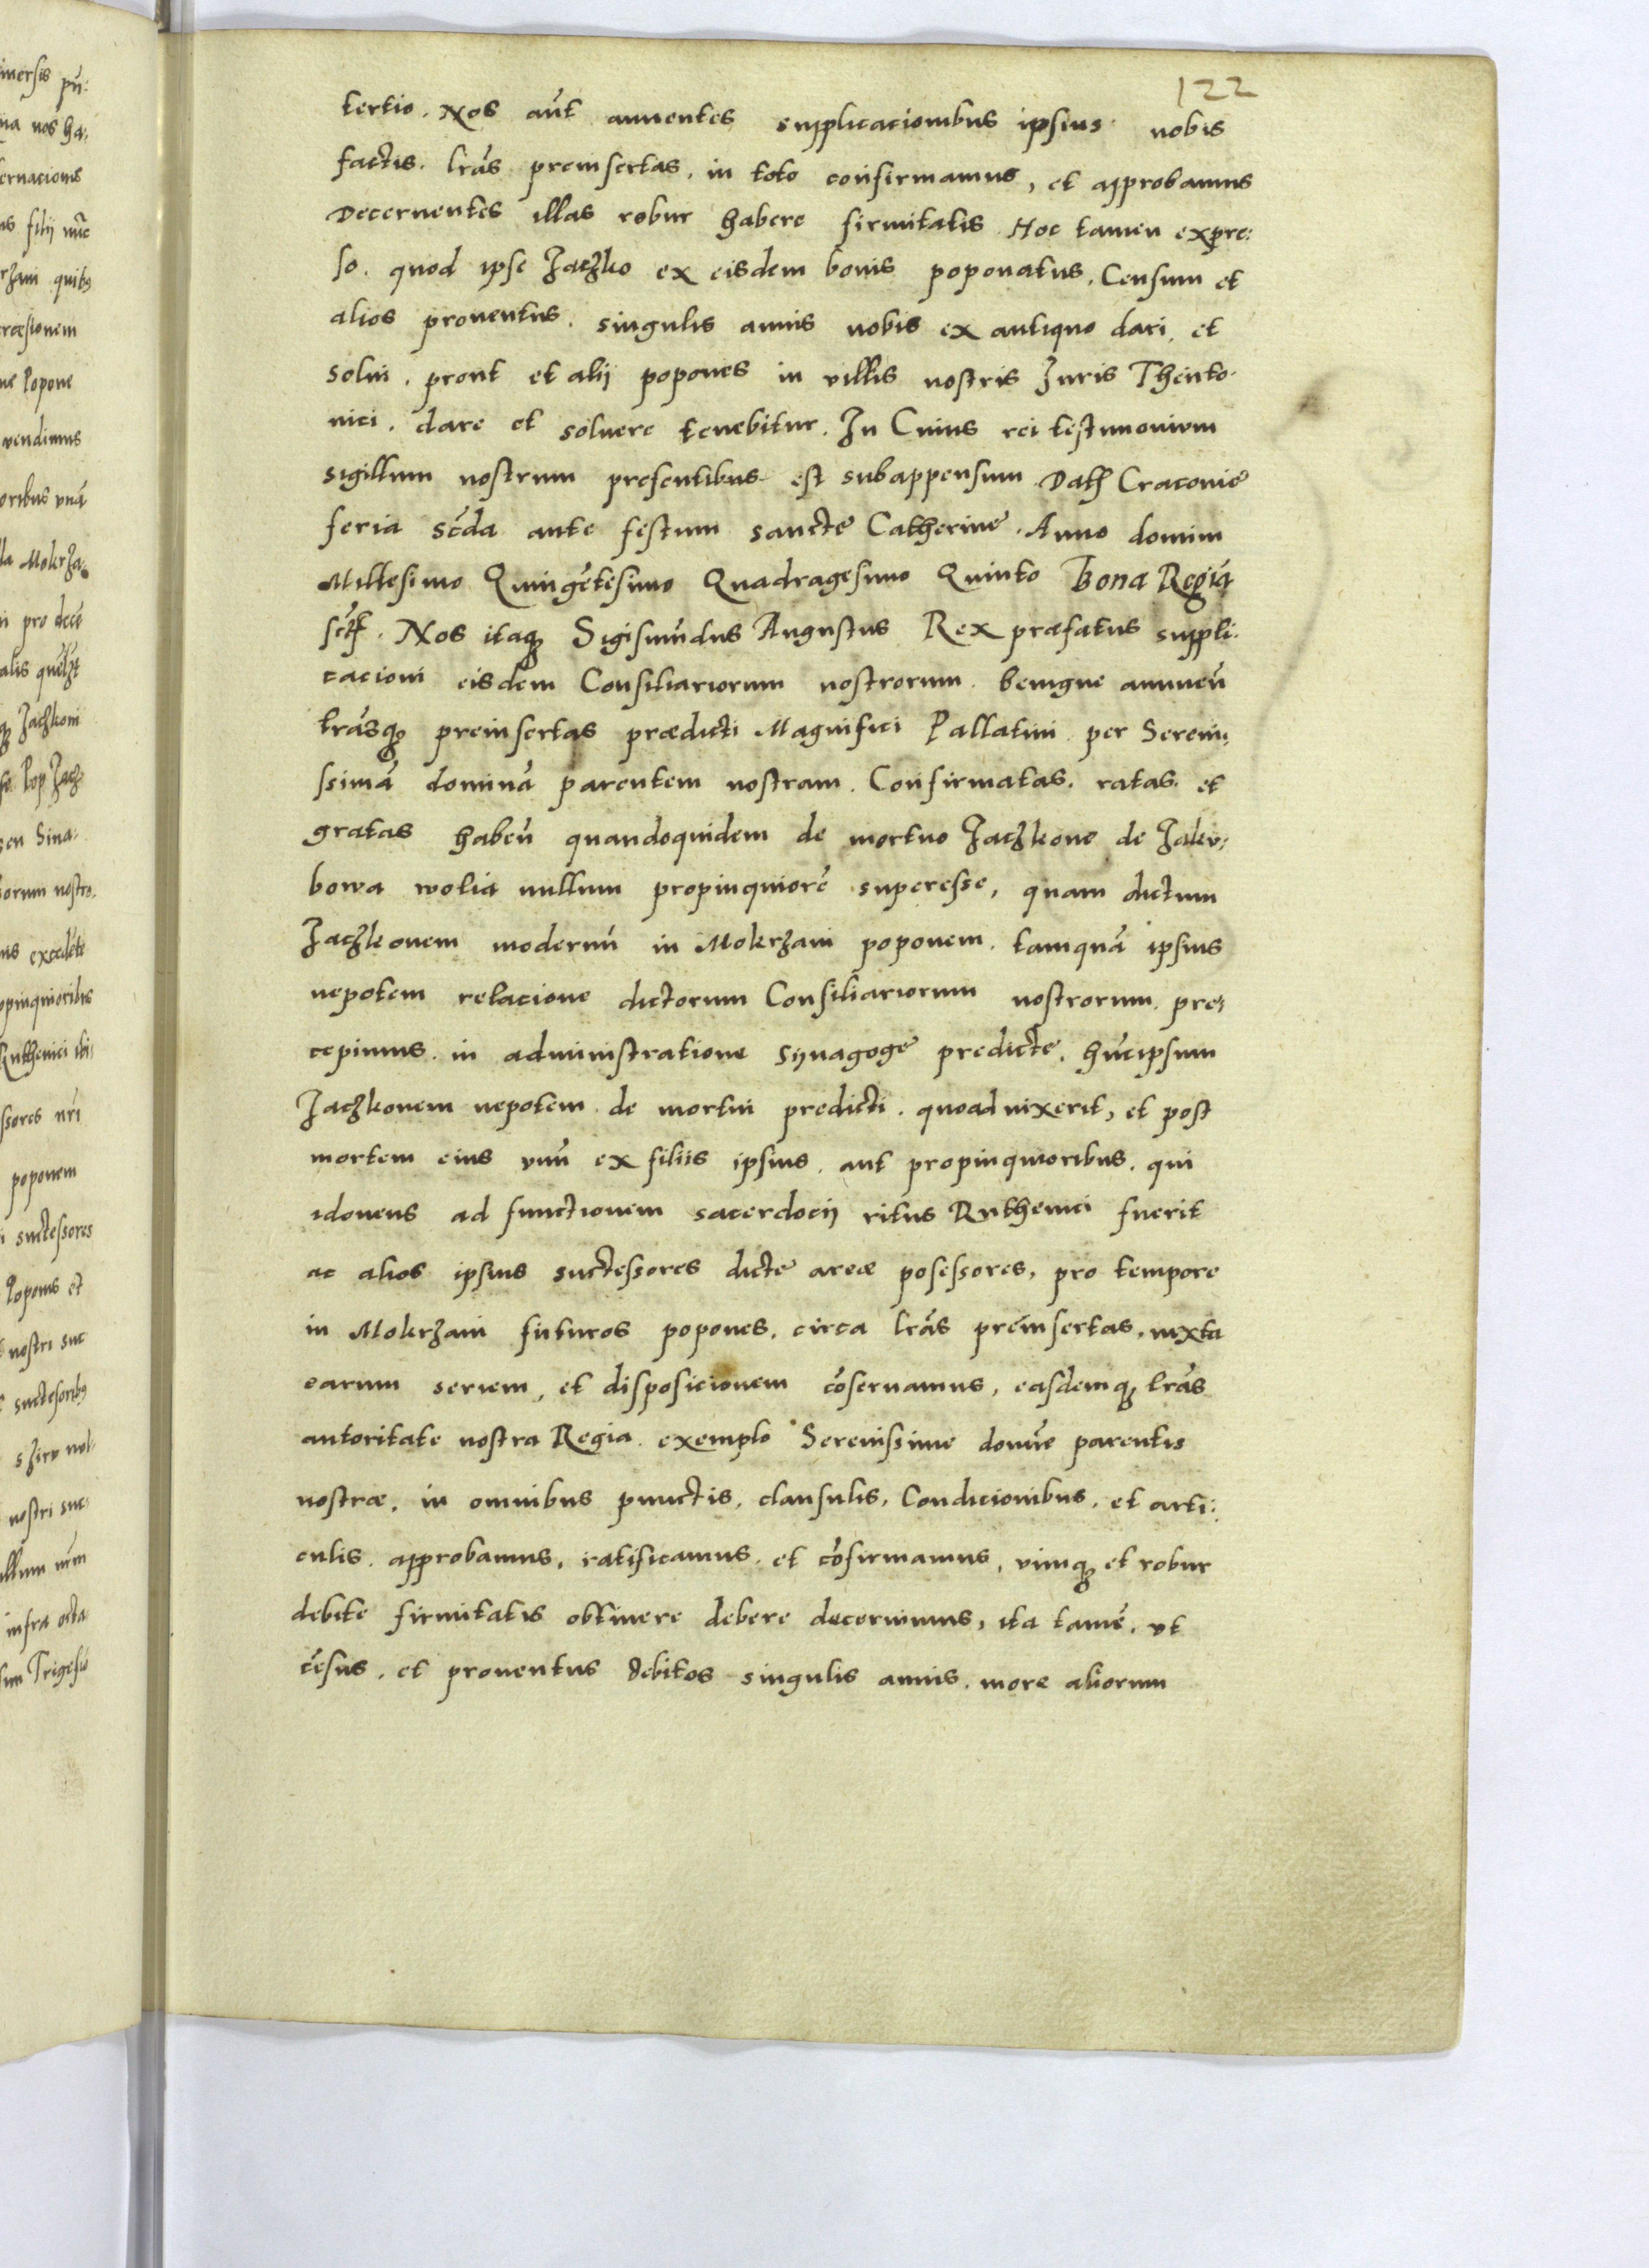 122
tertio. Nos aūt annuentes supplicacionibus ipsius nobis
factis. lrās preinsertas, in toto confirmamus, et approbamus
Decernentes illas robur habere firmitatis Hoc tamen expre:
so. quod ipse Jaczko ex eisdem bonis poponatus, Censum et
alios proventus, singulis annis nobis ex antiquo dari, et
solui, prout et alij popones in villis nostris Juris Theuto-
nici, dare et soluere tenebitur. In Cuius rei testimonium
sigillum nostrum presentibus est subappensum Dat̄ Cracovie
feria scd̄a ante festum sancte Catherine. Anno domini
Millesimo Quingētesimo Quadragesimo Quinto Bona Regina
sc̄rpt. Nos itaq̨ Sigismūdus Augustus Rex præfatus suppli-
cacioni eisdem Consiliariorum nostrorum. benigne annueñ
lrāsq̨ preinsertas prædicti Magnifici Pallatini per Sereni-
ssimā dominā parentem nostram. Confirmatas, ratas, et
gratas habeñ quandoquidem de mortuo Jaczkone de Jaku-
bowa wolia nullum propinquiorē superesse, quam dictum
Jaczkonem modernū in Mokrzani poponem, tamquā ipsius
nepotem relacione dictorum Consiliariorum nostrorum, pre-
cepimus. in administratione Synagoge predicte. hūcipsum
Jaczkonem nepotem de mortui predicti. quoad uixerit, et post
mortem eius vnū ex filiis ipsius, aut propinquioribus, qui
idoneus ad functionem sacerdocij ritus Ruthenici fuerit
ac alios ipsius suctessores dicte areæ posessores, pro tempore
in Mokrzani futuros popones, circa lrās preinsertas, iuxta
earum seriem, et disposicionem cōseruamus, easdemq̨ lrās
autoritate nostra Regia. exemplo Serenissime domīe parentis
nostræ. in omnibus punctis, clausulis, Condicionibus, et arti:
culis. approbamus, ratificamus, et cōfirmamus, vimq̨ et robur
debite firmitatis obtinere debere decernimus, ita tamē, vt
cēsus, et proventus debitos singulis annis, more aliorum